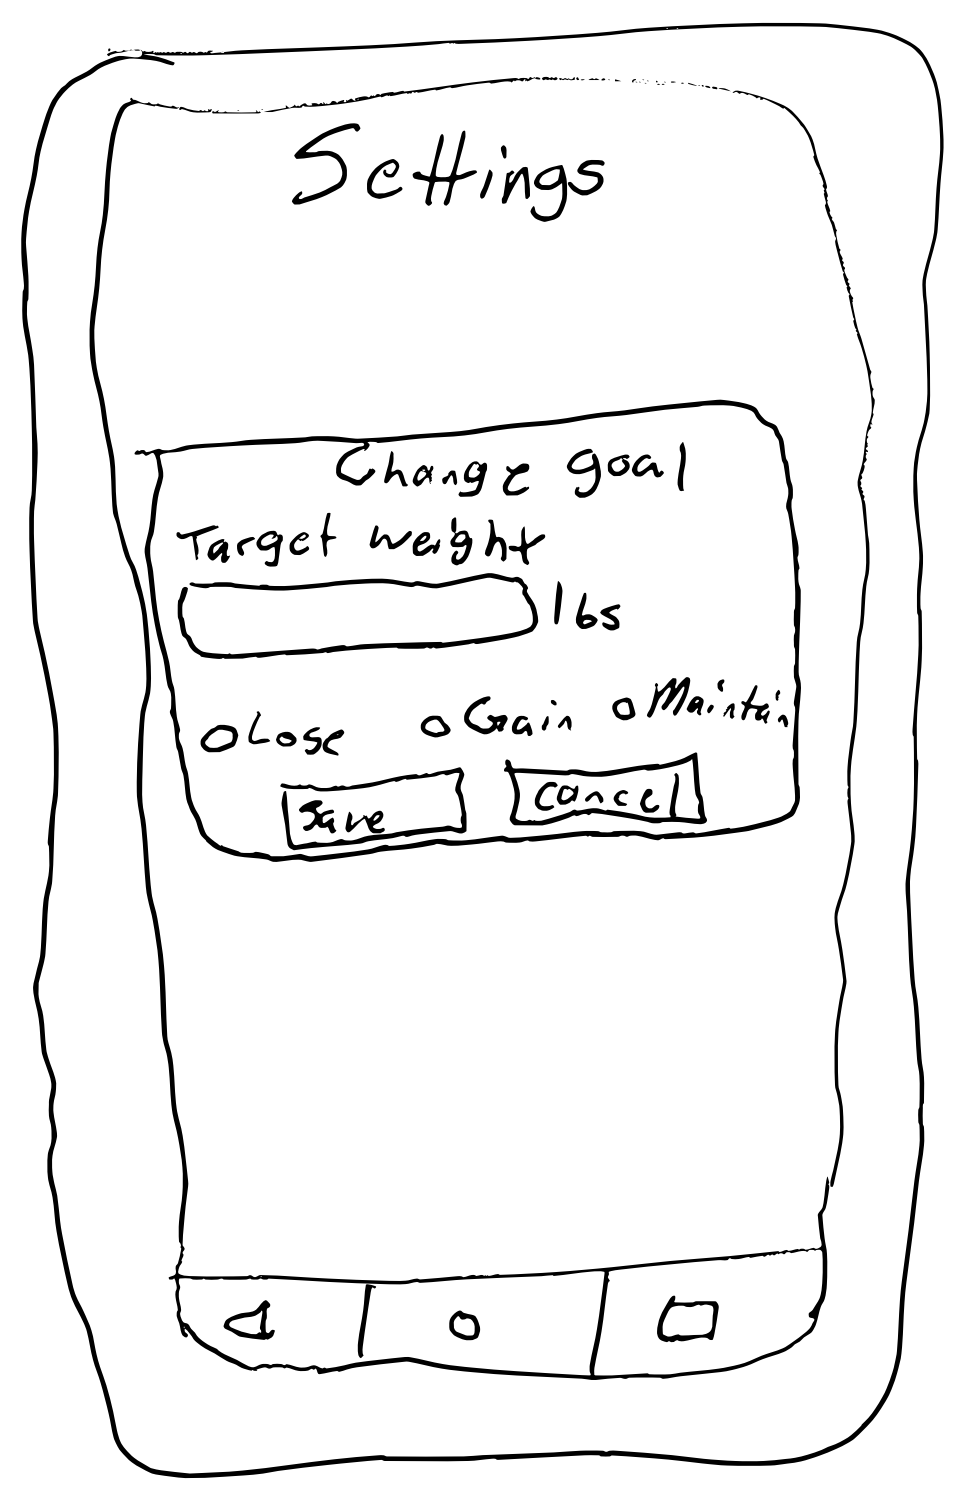 Settings
Change goal
Target weight
lbs
Lose Gain Maintain
Save Cancel